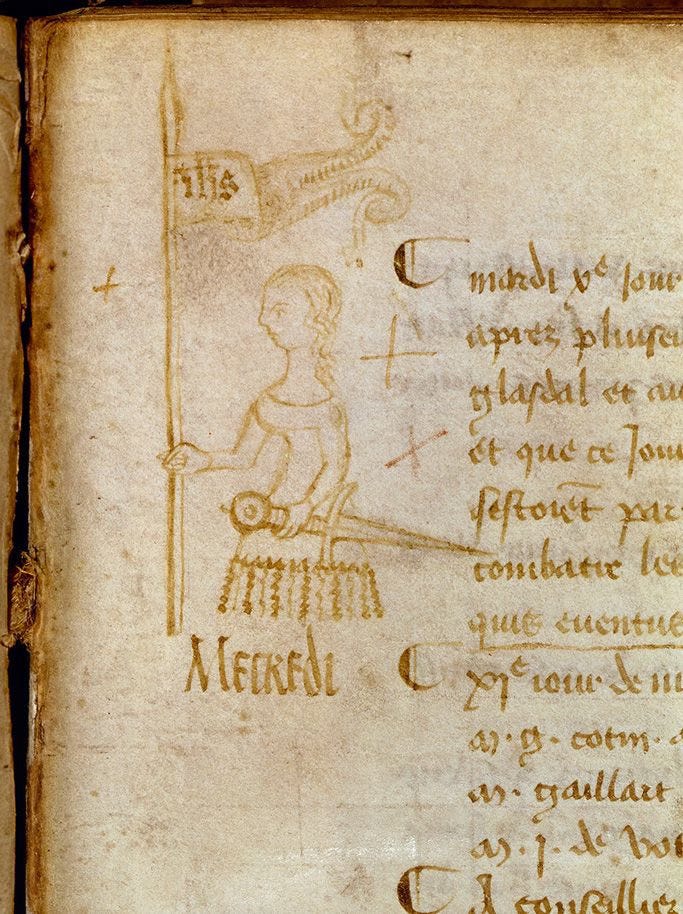 ihs
mardi xe jour
aprez pluiseu
glasdal et au
et que ce Jour
sestoiẽt par
combatre les
quis euentus
MERCREDI
XIe iour de m
m. g. cotin.
m. gaillart
m. J. de
A conseillier